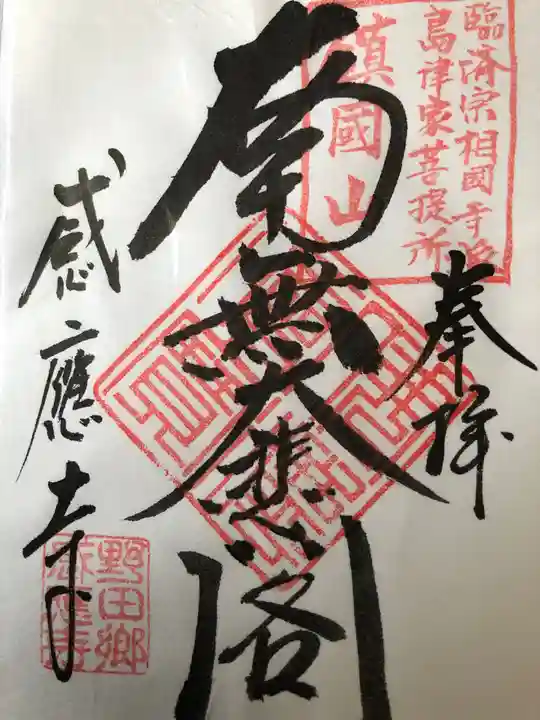 臨済宗相國寺派
島津家菩提所
鎮國山
奉拝
南無大悲閣
感應寺
野田郷
感應寺